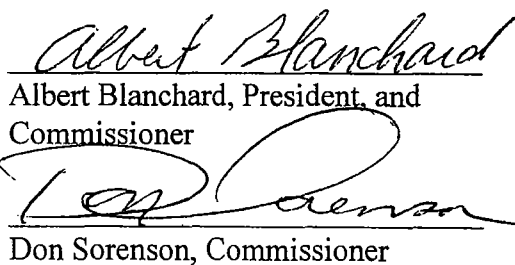 Albert Blanchard
Albert Blanchard, President, and
Commissioner
Don Sorenson
Don Sorenson, Commissioner